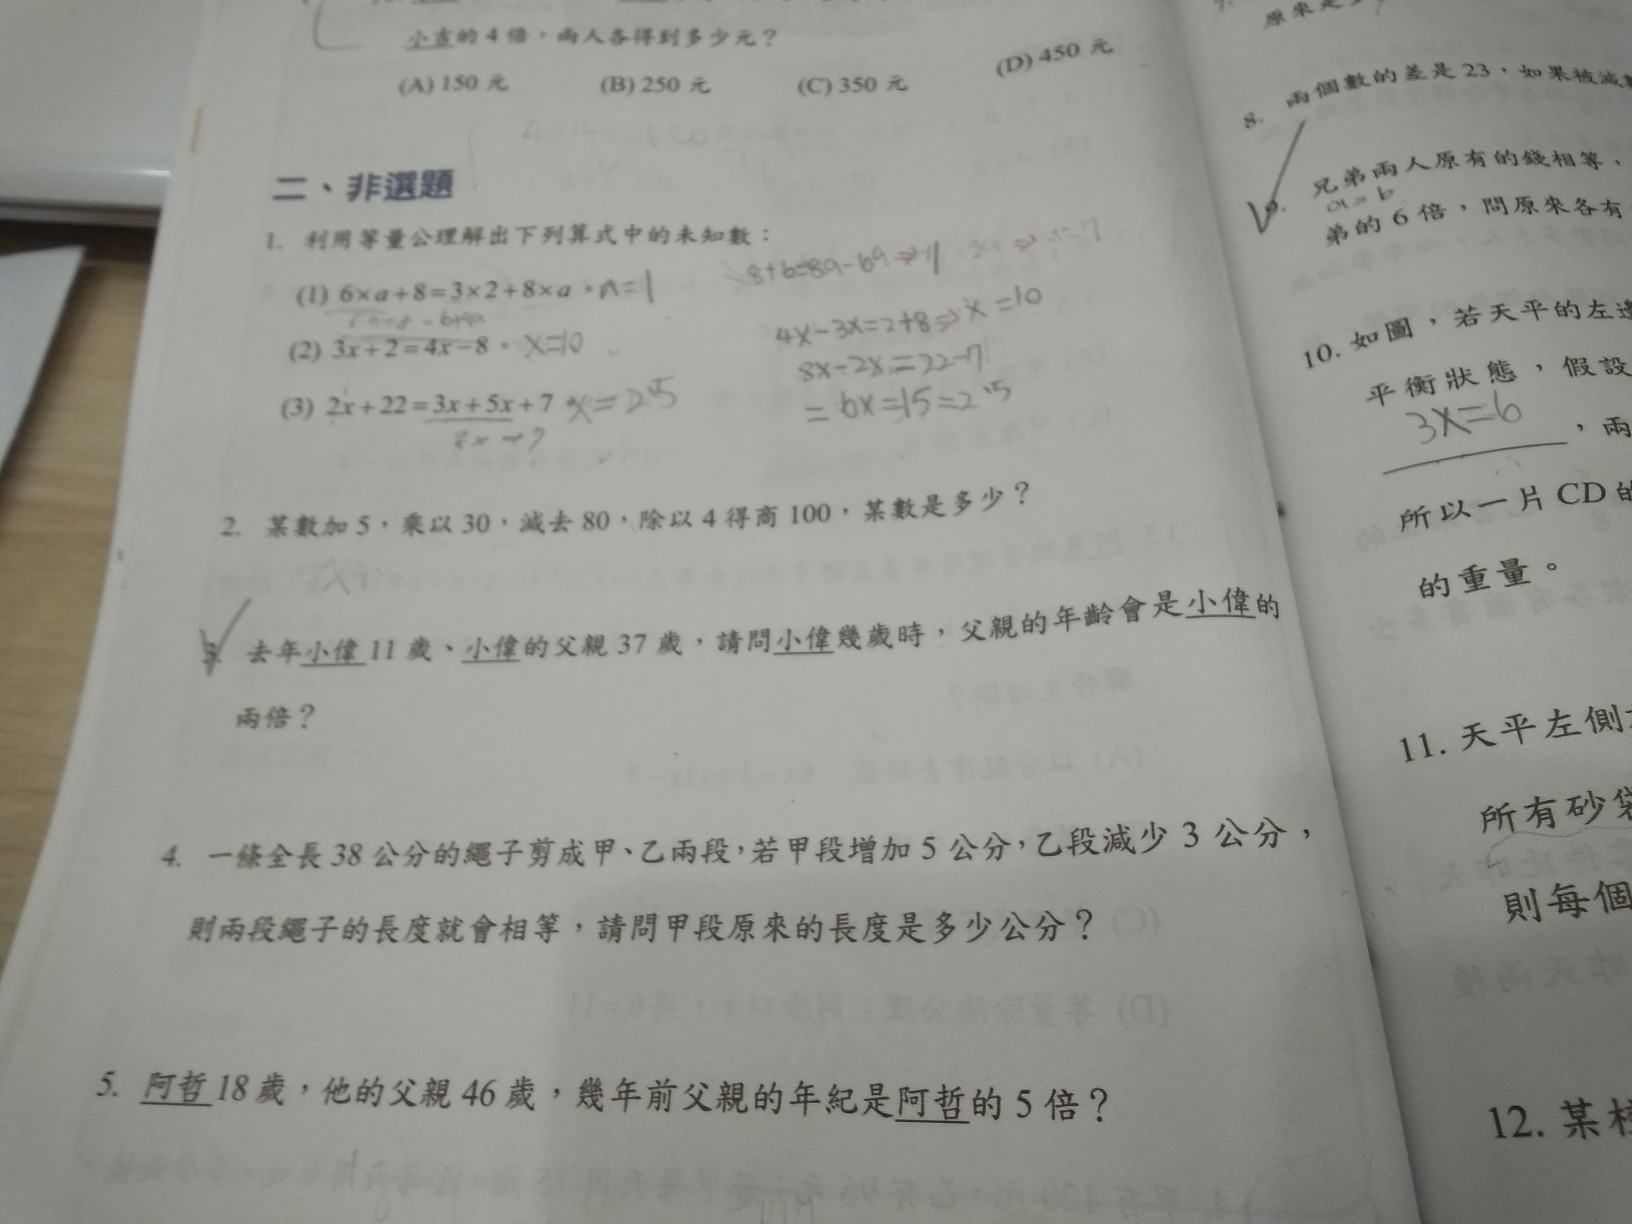 小吉的4倍，兩人各得到多少元？
(A) 150 元 (B) 250 元 (C) 350 元 (D) 450 元
二、非選題
1. 利用等量公理解出下列算式中的未知數：
(1) 6×a+8=3×2+8×a。a=1
(2) 3x+2=4x-8。x=10
4x-3x=2+8⇒x=10
(3) 2x+22=3x+5x+7 x=2.5
8x-2x=22-7
=6x=15=2.5
8x+7
2. 某數加 5，乘以 30，減去 80，除以 4 得商 100，某數是多少？
3. 去年小偉 11 歲、小偉的父親 37 歲，請問小偉幾歲時，父親的年齡會是小偉的
兩倍？
4. 一條全長 38 公分的繩子剪成甲、乙兩段，若甲段增加 5 公分，乙段減少 3 公分，
則兩段繩子的長度就會相等，請問甲段原來的長度是多少公分？
5. 阿哲 18 歲，他的父親 46 歲，幾年前父親的年紀是阿哲的 5 倍？
原來是
8. 兩個數的差是 23，如果被減
9. 兄弟兩人原有的錢相等，
a=b
弟的 6 倍，問原來各有
10. 如圖，若天平的左邊
平衡狀態，假設
3x=6，兩
所以一片 CD 的
的重量。
11. 天平左側
所有砂袋
則每個
12. 某